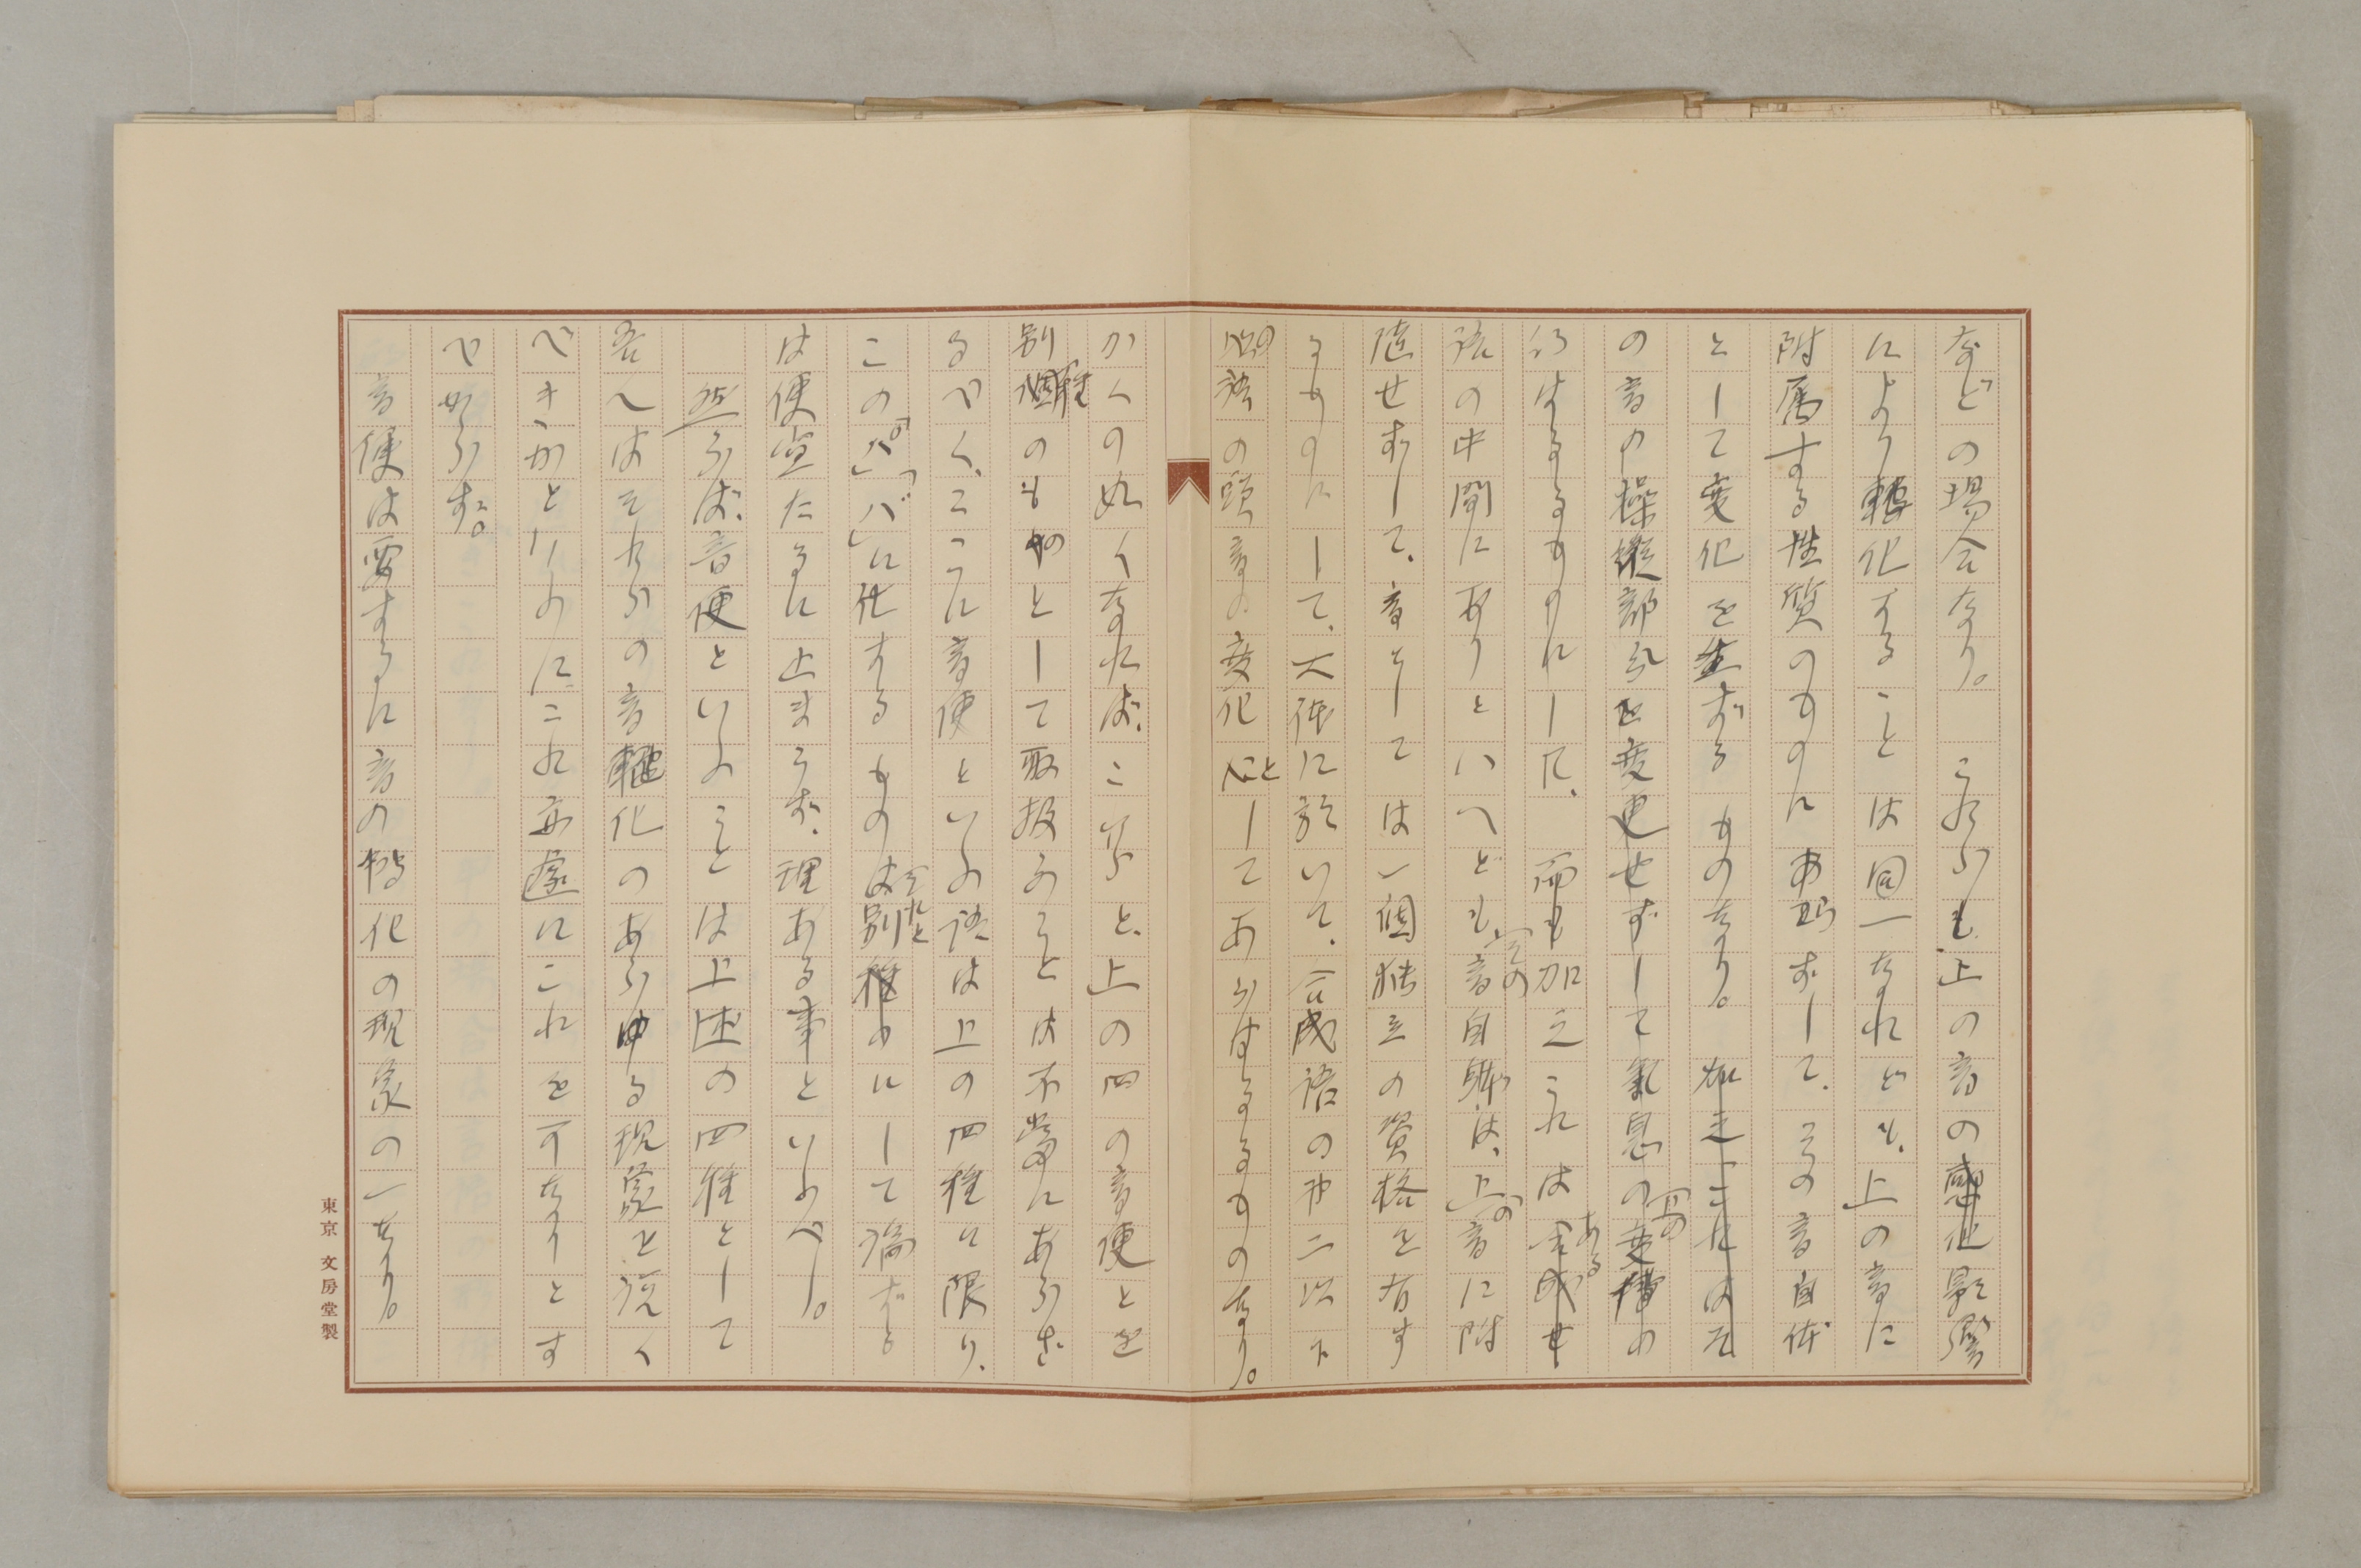 などの場合なり。これらも、上の音の感化影響
により轉化することは同一なれども、上の音に
附属する性質のものにあらずして、その音自体
として変化を生ずるものなり。加之これはそ
の音の操縦部分を変更せずして氣息の為の変
行はるるものれして、而も加之これはある合成せ
語の中間にありといへども、その音自身は、上の音に附
随せずして、音としては一個独立の資格を有す
るものにして、大体に於いて、合成語の第二以下
の語の頭音の変化としてあらはるるものなり。
かくの如くなれば、これらと、上の四の音便とを
別種のものとして取扱ふことは不當にあらざ
るべく、ここに音便といふ語は上の四種に限り、
この「パ」「バ」に化するものはそれと別のにして論ずる
は便宜たるに止まらず、理ある事といふべし。
然らば、音便といふことは上述の四種として
吾人はそれらの音轉化のあらゆる現象を説く
べきかといふに、これ亦遽にこれを可なりとす
べからず。
音便は要するに音の轉化の現象の一なり。
東京 文房堂製